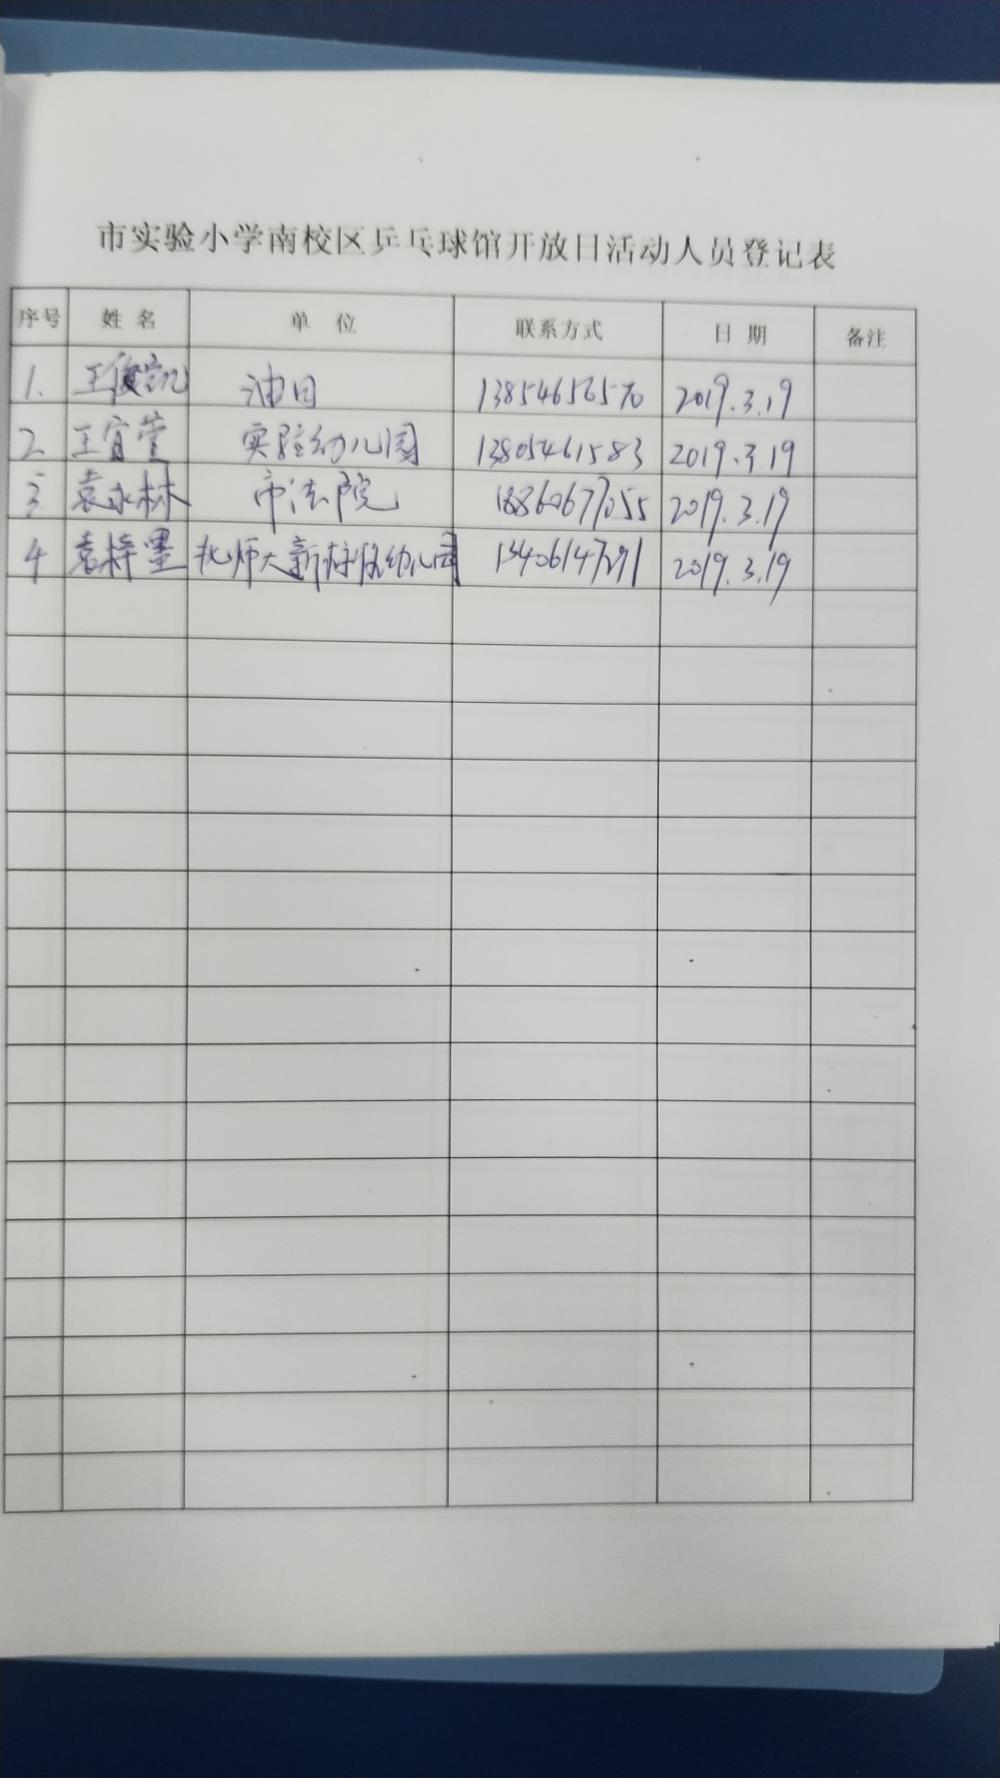 市实验小学南校区乒乓球馆开放日活动人员登记表
序号 姓 名 单 位 联系方式 日 期 备注
1. 王俊凯 油田 13854656570 2019.3.19
2. 王宜萱 实验幼儿园 13805461583 2019.3.19
3 袁永林 市法院 18860677055 2019.3.19
4 袁梓墨 北师大新校区幼儿园 13406147291 2019.3.19